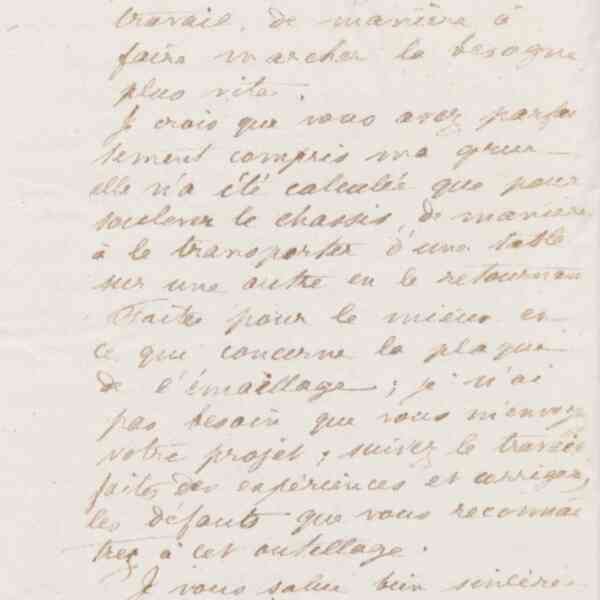 travail, de manière à
faire marcher la besogne
plus vite.
Je crois que vous avez parfai
tement compris ma grue
elle n'a été calculée que pour
soulever le chassis, de manière
à le transporter d'une table
sur une autre en le retournan
Faites pour le mieux en
ce que concerne la plaque
de l'émaillage; je n'ai
pas besoin que vous m'envoyez
votre projet; suivez le travail
faites des expériences et corrigez
les défauts que vous reconnaî
trez à cet outillage.
Je vous salue bien sincère